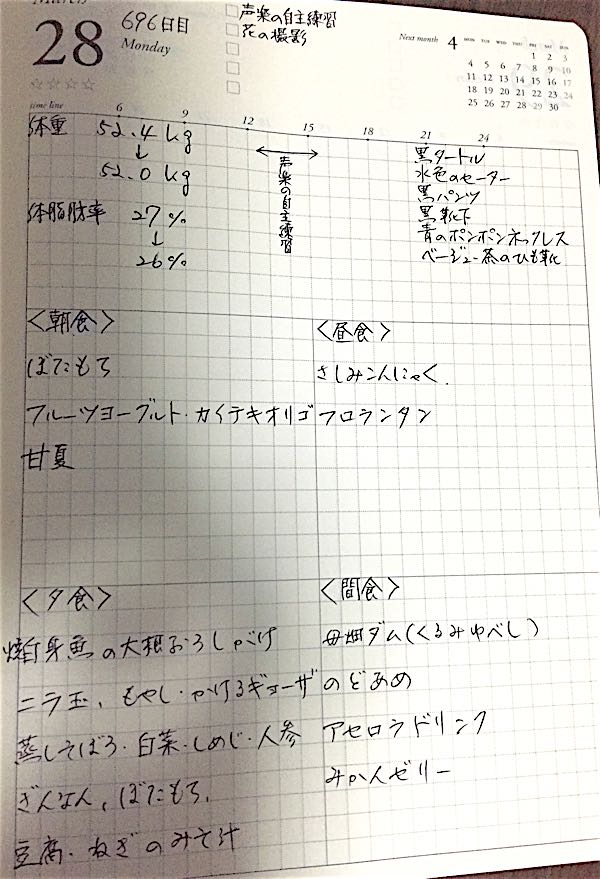 March
28
696日目
Monday
声楽の自主練習
花の撮影
Next month 4
MON TUE WED THU FRI SAT SUN
1 2 3
4 5 6 7 8 9 10
11 12 13 14 15 16 17
18 19 20 21 22 23 24
25 26 27 28 29 30
time line 6 9 12 15 18 21 24
体重 52.4 kg
↓
52.0 kg
体脂肪率 27%
↓
26%
声楽の自主練習
黒タートル
水色のセーター
黒パンツ
黒靴下
青のポンポンネックレス
ベージュ・茶のひも靴
<朝食>
ぼたもち
フルーツヨーグルト・カイテキオリゴ
甘夏
<昼食>
さしみこんにゃく
フロランタン
<夕食>
焼白身魚の大根おろしかけ
ニラ玉、もやし・かけるギョーザ
蒸しそぼろ・白菜・しめじ・人参
ぎんなん、ぼたもち、
豆腐・ねぎのみそ汁
<間食>
母畑ダム(くるみゆべし)
のどあめ
アセロラドリンク
みかんゼリー